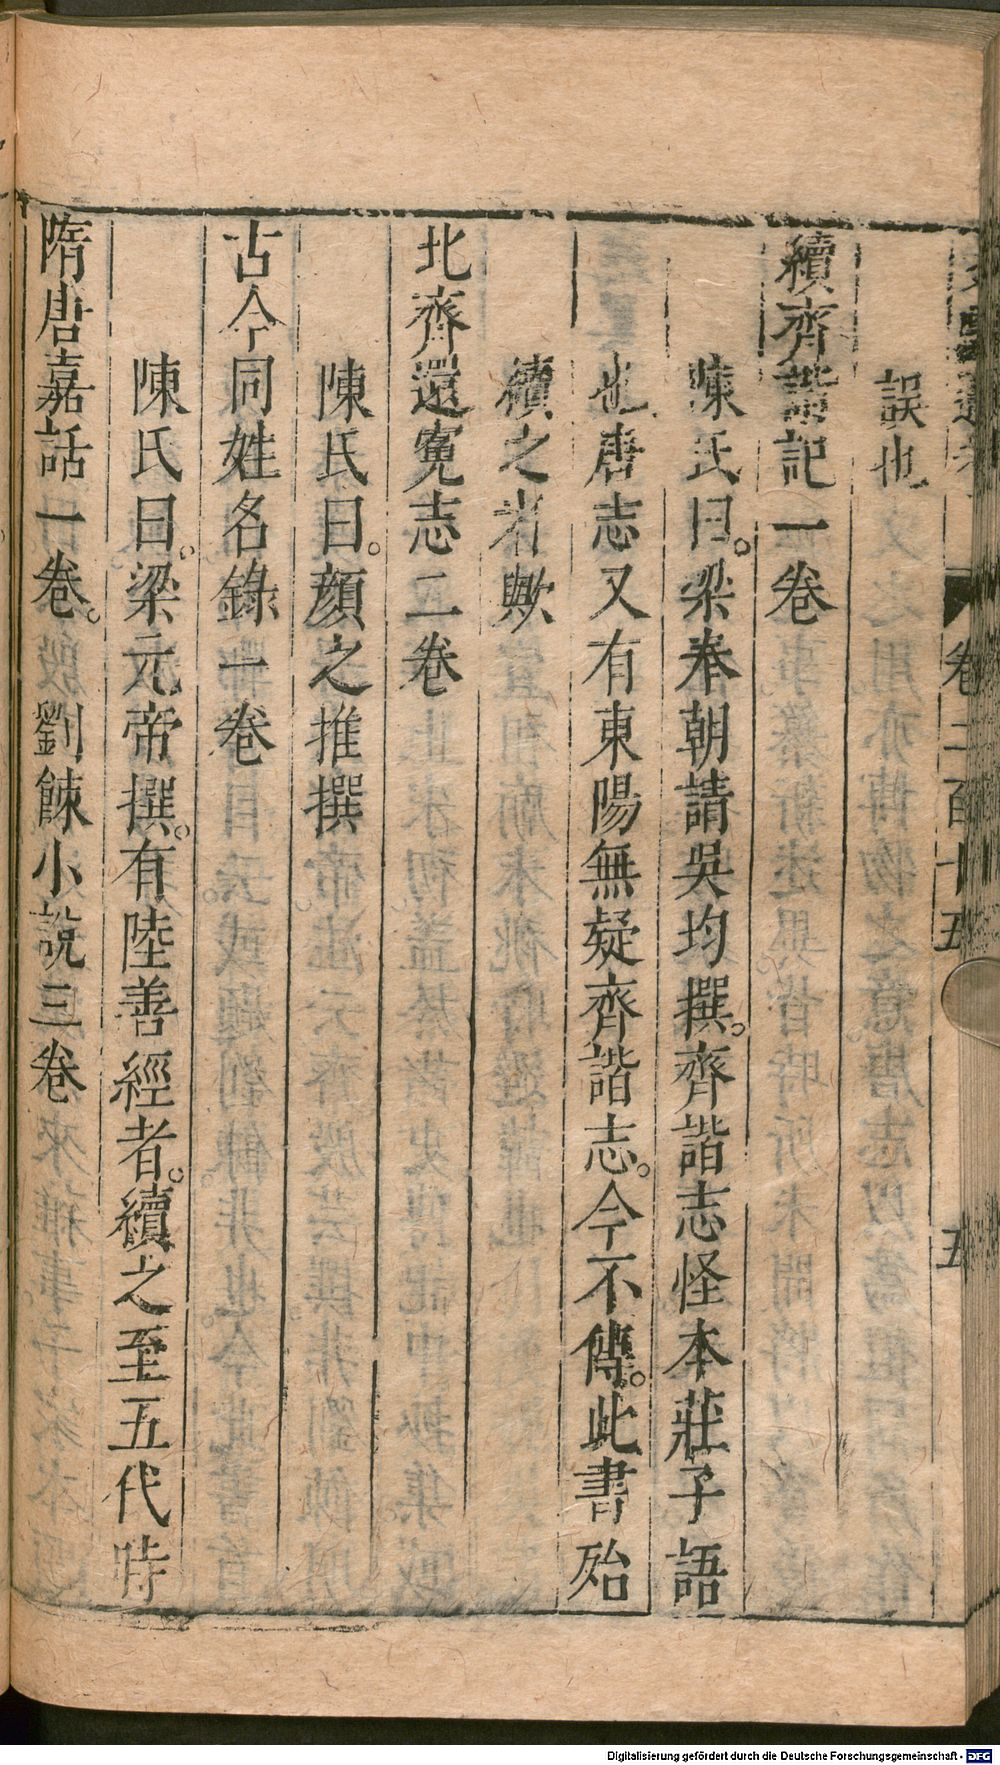 卷二百十五　五
誤也
續齊諧記一卷
陳氏曰。梁奉朝請吳均撰。齊諧志怪本莊子語
也唐志又有東陽無疑齊諧志。今不傳。此書殆
續之者歟
北齊還寃志二卷
陳氏曰。顏之推撰
古今同姓名錄一卷
陳氏曰。梁元帝撰。有陸善經者。續之至五代時
隋唐嘉話一卷。劉餗小說三卷
Digitalisierung gefördert durch die Deutsche Forschungsgemeinschaft - DFG